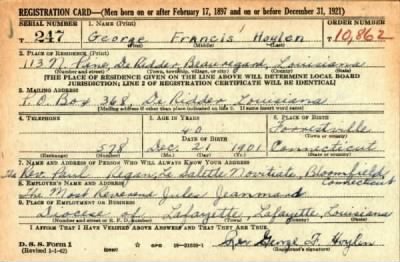 REGISTRATION CARD—(Men born on or after February 17, 1897 and on or before December 31, 1921)
SERIAL NUMBER 1. NAME (Print) ORDER NUMBER
T 247 George Francis Hoylen 10,862
(First) (Middle) (Last)
2. PLACE OF RESIDENCE (Print)
113 N. Pine, De Ridder Beauregard, Louisiana
(Number and street) (Town, township, village, or city) (County) (State)
[THE PLACE OF RESIDENCE GIVEN ON THE LINE ABOVE WILL DETERMINE LOCAL BOARD
JURISDICTION; LINE 2 OF REGISTRATION CERTIFICATE WILL BE IDENTICAL]
3. MAILING ADDRESS
P. O. Box 368, De Ridder, Louisiana
(Mailing address if other than place indicated on line 2. If same insert word same)
4. TELEPHONE 5. AGE IN YEARS 6. PLACE OF BIRTH
40 Forrestville
DATE OF BIRTH (Town or county)
578 Dec. 21 1901 Connecticut
(Exchange) (Number) (Mo.) (Day) (Yr.) (State or country)
7. NAME AND ADDRESS OF PERSON WHO WILL ALWAYS KNOW YOUR ADDRESS
The Rev. Paul Regan, La Salette Novitiate, Bloomfield, Connecticut
8. EMPLOYER'S NAME AND ADDRESS
The Most Reverend Jules Jeanmard
9. PLACE OF EMPLOYMENT OR BUSINESS
Diocese of Lafayette, Lafayette, Louisiana
(Number and street or R. F. D. number) (Town) (County) (State)
I AFFIRM THAT I HAVE VERIFIED ABOVE ANSWERS AND THAT THEY ARE TRUE.
D. S. S. Form 1
(Revised 1-1-42) (over) GPO Rev. George F. Hoylen
(Registrant's signature)